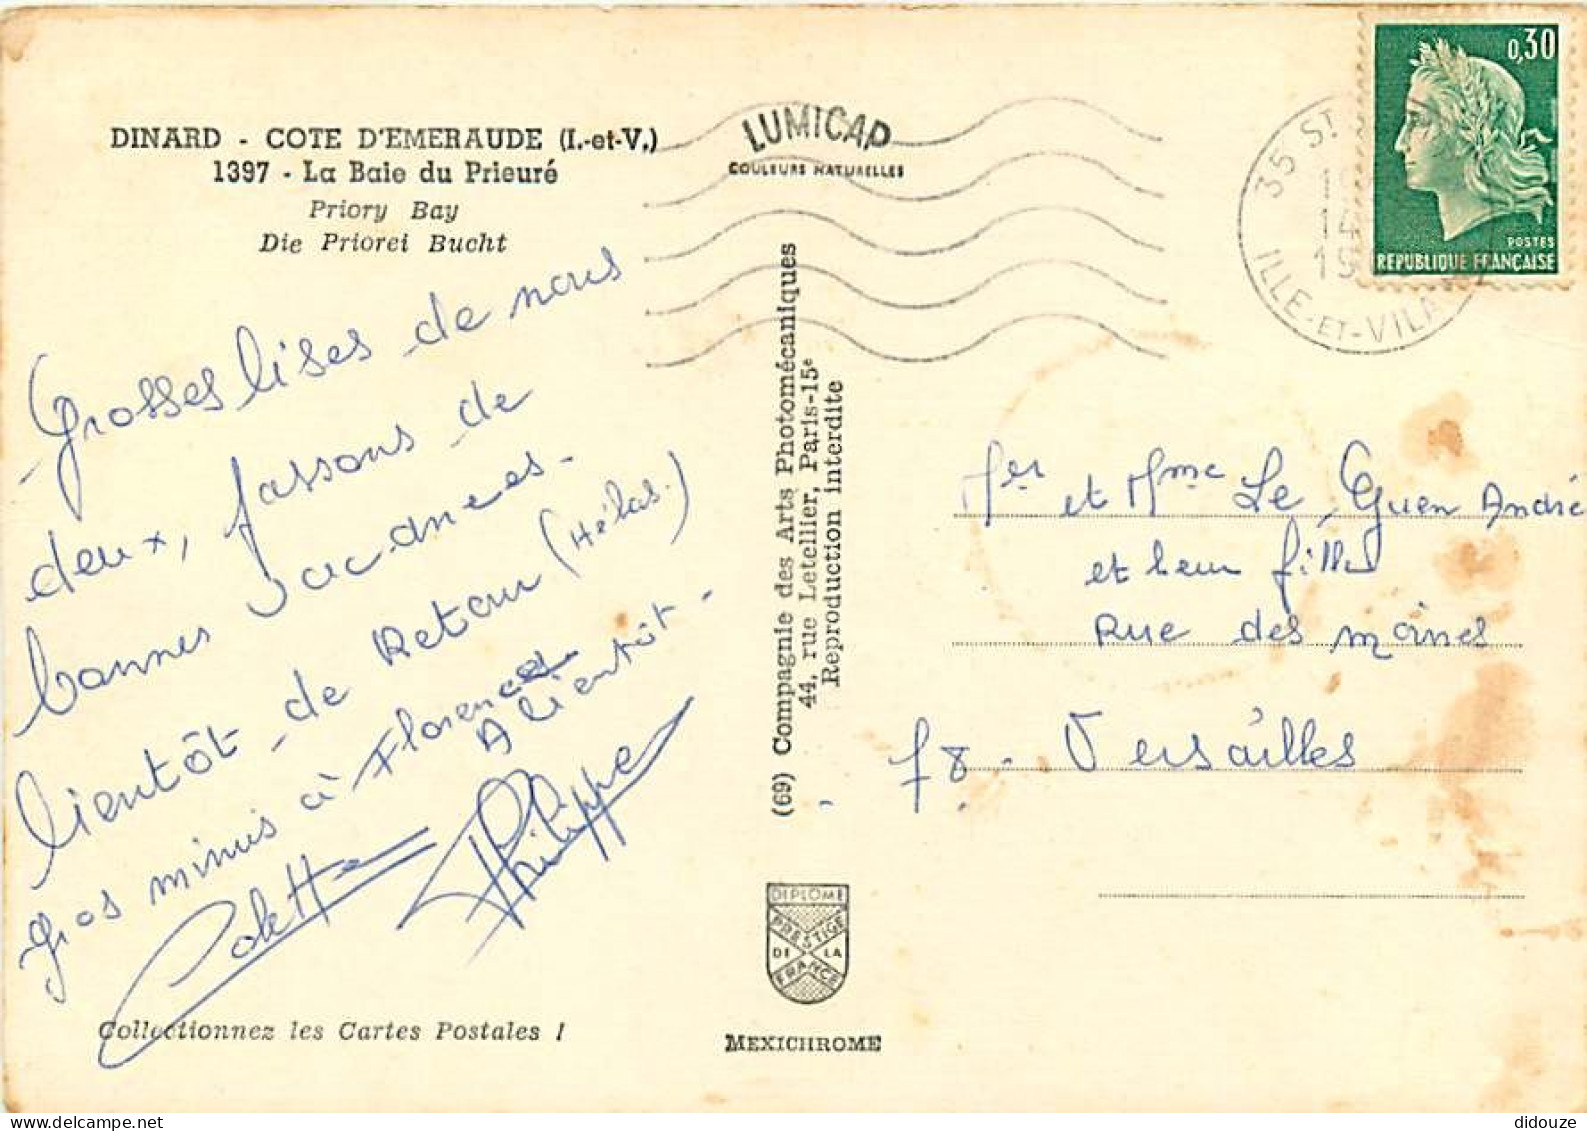 DINARD - COTE D'EMERAUDE (I.-et-V.)
1397 - La Baie du Prieuré
Priory Bay
Die Priorei Bucht
Grosses bises de nous
deux, passons de
bonnes vacances.
bientôt de Retour (Hélas.)
gros minus à Florence
A bientôt.
Colette Philippe
Collectionnez les Cartes Postales !
LUMICAP
COULEURS NATURELLES
(69) Compagnie des Arts Photomécaniques
44, rue Letellier, Paris-15e
Reproduction interdite
DIPLOME
PRESTIGE
DE LA
FRANCE
MEXICHROME
0,30
POSTES
REPUBLIQUE FRANÇAISE
35 ST
19
ILLE-ET-VILA
Mer et Mme Le Guen André
et leur filles
Rue des moines
78 - Versailles
didouze